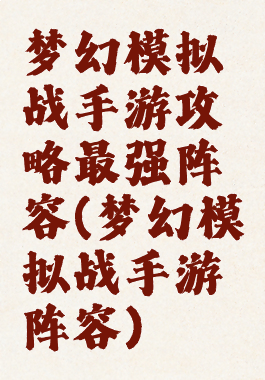 梦幻模拟
战手游攻
略最强阵
容(梦幻模
拟战手游
阵容)